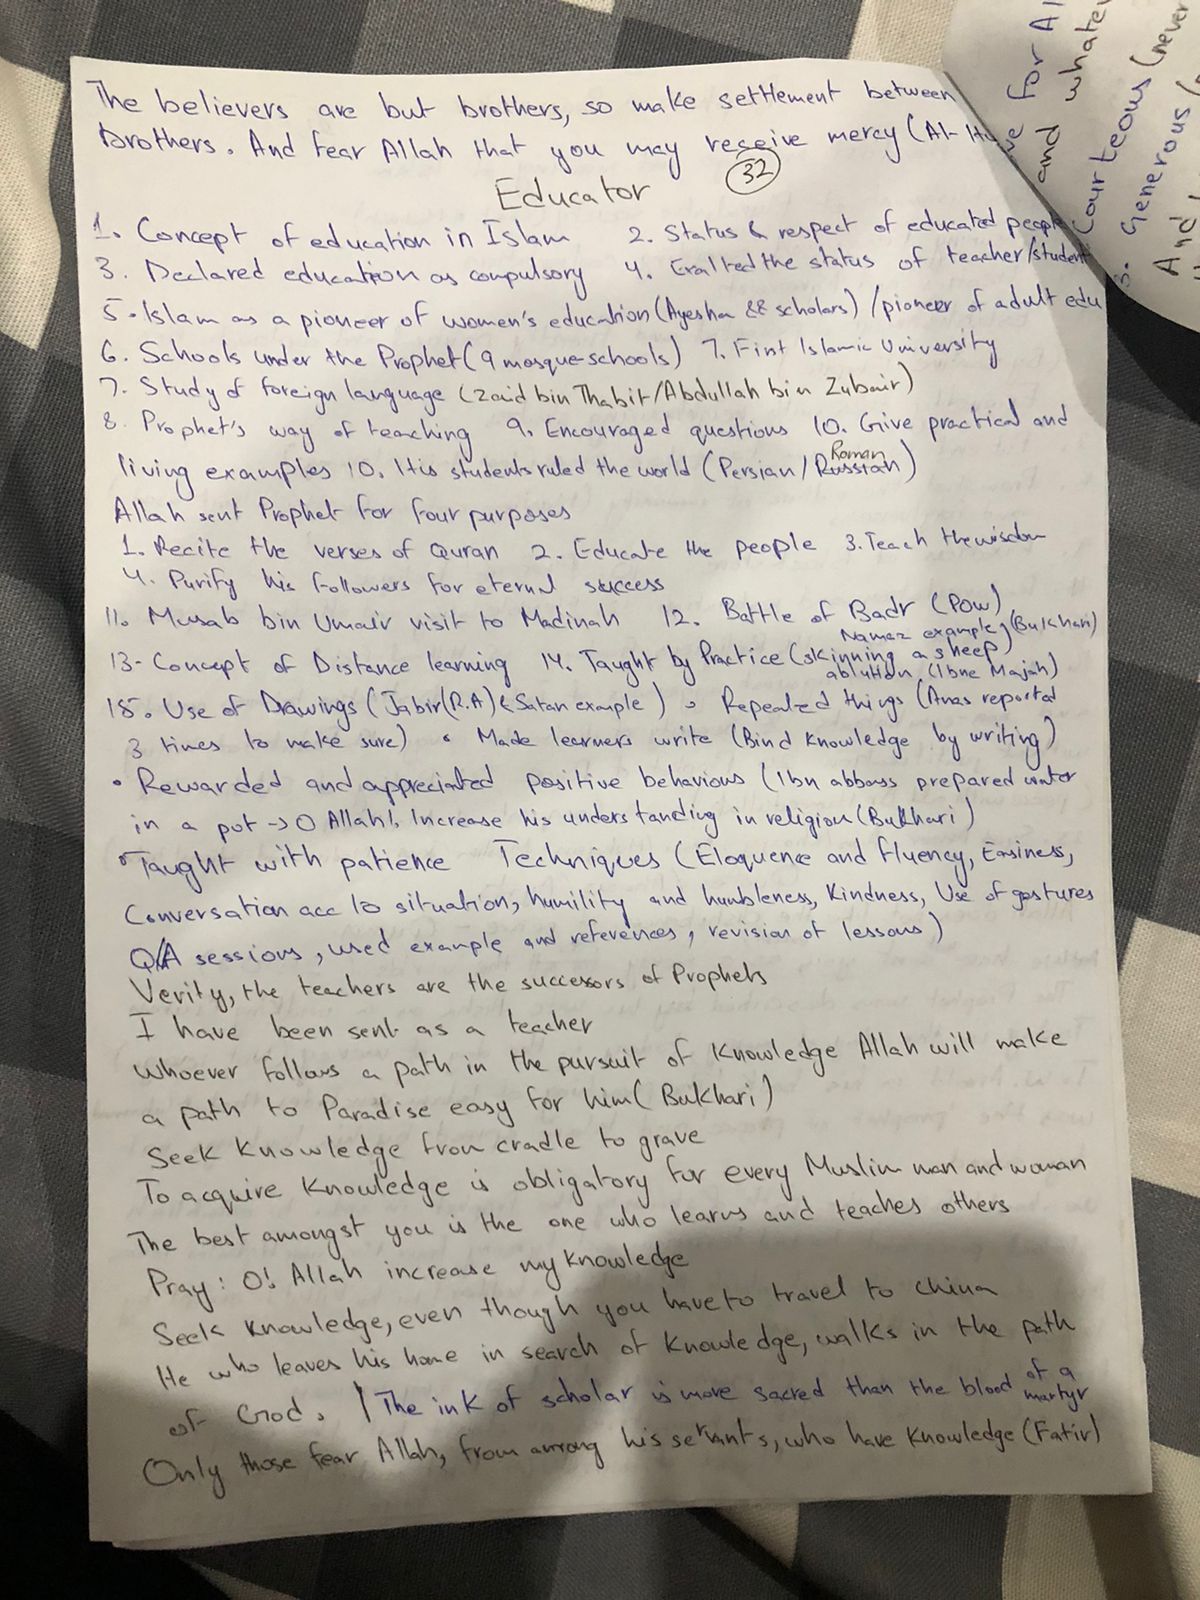 The believers are but brothers, so make settlement between
brothers. And fear Allah that you may receive mercy (Al-Hu
32
Educator
1. Concept of education in Islam 2. Status & respect of educated people
3. Declared education as compulsory 4. Exalted the status of teacher/student
5. Islam as a pioneer of women's education (Ayesha 88 scholars) / pioneer of adult edu
6. Schools under the Prophet (9 mosque-schools) 7. First Islamic University
7. Study of foreign language (Zaid bin Thabit/Abdullah bin Zubair)
8. Prophet's way of teaching 9. Encouraged questions 10. Give practical and
living examples 10. His students ruled the world (Persian/Russian)
Roman
Allah sent Prophet for four purposes
1. Recite the verses of Quran 2. Educate the people 3. Teach the wisdom
4. Purify his followers for eternal success
11. Musab bin Umair visit to Madinah 12. Battle of Badr (POW)
Namaz example (Bukhari)
13- Concept of Distance learning 14. Taught by Practice (skinning a sheep)
ablution (Ibne Majah)
15. Use of Drawings (Jabir(R.A) & Satan example) • Repeated things (Anas reported
3 times to make sure) • Made learners write (Bind knowledge by writing)
• Rewarded and appreciated positive behaviour (Ibn abbass prepared water
in a pot → O Allah!, Increase his understanding in religion (Bukhari)
• Taught with patience Techniques (Eloquence and fluency, Easiness,
Conversation acc to situation, humility and humbleness, Kindness, Use of gestures
Q/A sessions, used example and references, revision of lessons)
Verity, the teachers are the successors of Prophets
I have been sent as a teacher
Whoever follows a path in the pursuit of knowledge Allah will make
a path to Paradise easy for him (Bukhari)
Seek knowledge from cradle to grave
To acquire knowledge is obligatory for every Muslim man and woman
The best amongst you is the one who learns and teaches others
Pray: O! Allah increase my knowledge
Seek knowledge, even though you have to travel to china
He who leaves his home in search of knowledge, walks in the path
of God. / The ink of scholar is more sacred than the blood of a martyr
Only those fear Allah, from among his servants, who have knowledge (Fatir)
ve for Al
and whatev
Courteous (never
3. Generous (
And